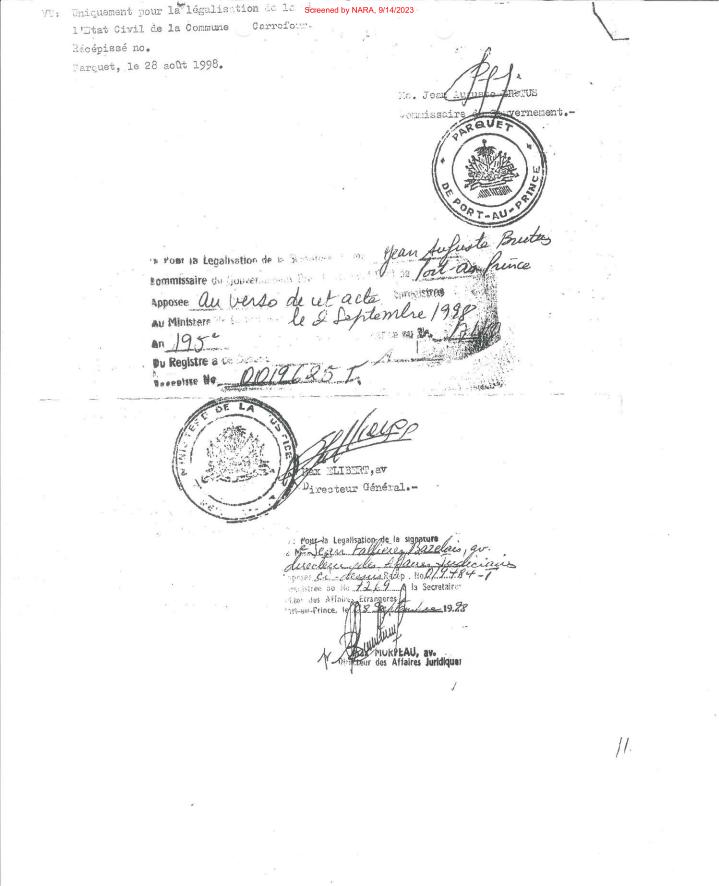 Screened by NARA, 9/14/2023
VU: Uniquement pour la légalisation de la
l'Etat Civil de la Commune Carrefour.
Récépissé no.
Parquet, le 28 août 1998.
Me. Jean Auguste BRUTUS
Commissaire du Gouvernement.-
PARQUET
DE PORT-AU-PRINCE
Pour la Legalisation de la Signature
Jean Auguste Brutus
Commissaire du Gouvernement
Port-au-Prince
Apposee au verso de cet acte Enregistree
Au Ministere de le 2 Septembre 1998
An 195e
Du Registre a ce
Recepisse No 0019625 I.
MINISTERE DE LA JUSTICE
Max ELIBERT, av
Directeur Général.-
Pour la Legalisation de la signature
Me Jean Fallieres Bazelais, av.
directeur des Affaires Judiciaires
apposee ci-dessus Recep. No 019784-I
enregistree au No 7269 a la Secretairerie
d'Etat des Affaires Etrangeres
Port-au-Prince, le 08 Septembre 1998
MURPEAU, av.
Directeur des Affaires Juridiques
11.